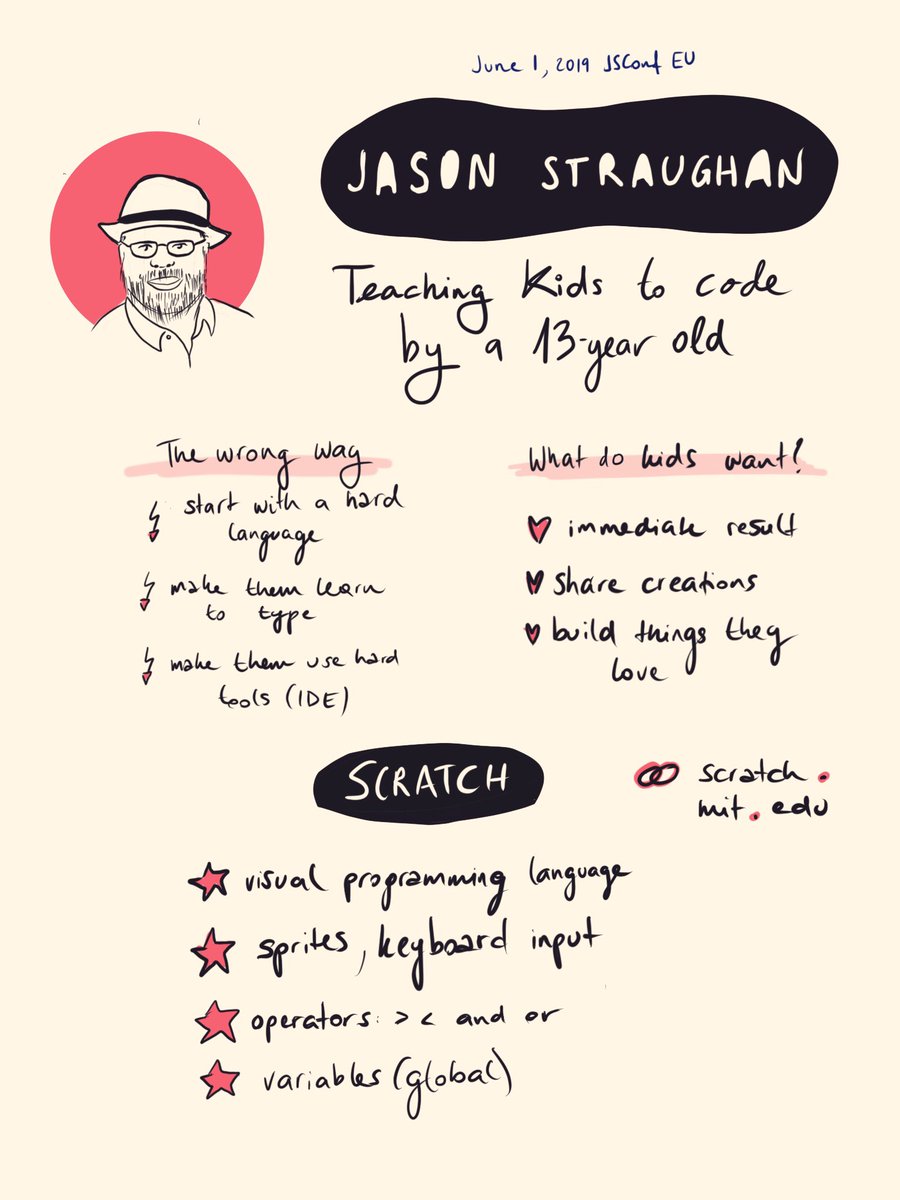 June 1, 2019 JSConf EU
JASON STRAUGHAN
Teaching Kids to code
by a 13-year old
The wrong way
start with a hard
language
make them learn
to type
make them use hard
tools (IDE)
What do kids want?
immediate result
share creations
build things they
love
SCRATCH
scratch.
mit.edu
visual programming language
sprites, keyboard input
operators: > < and or
variables (global)